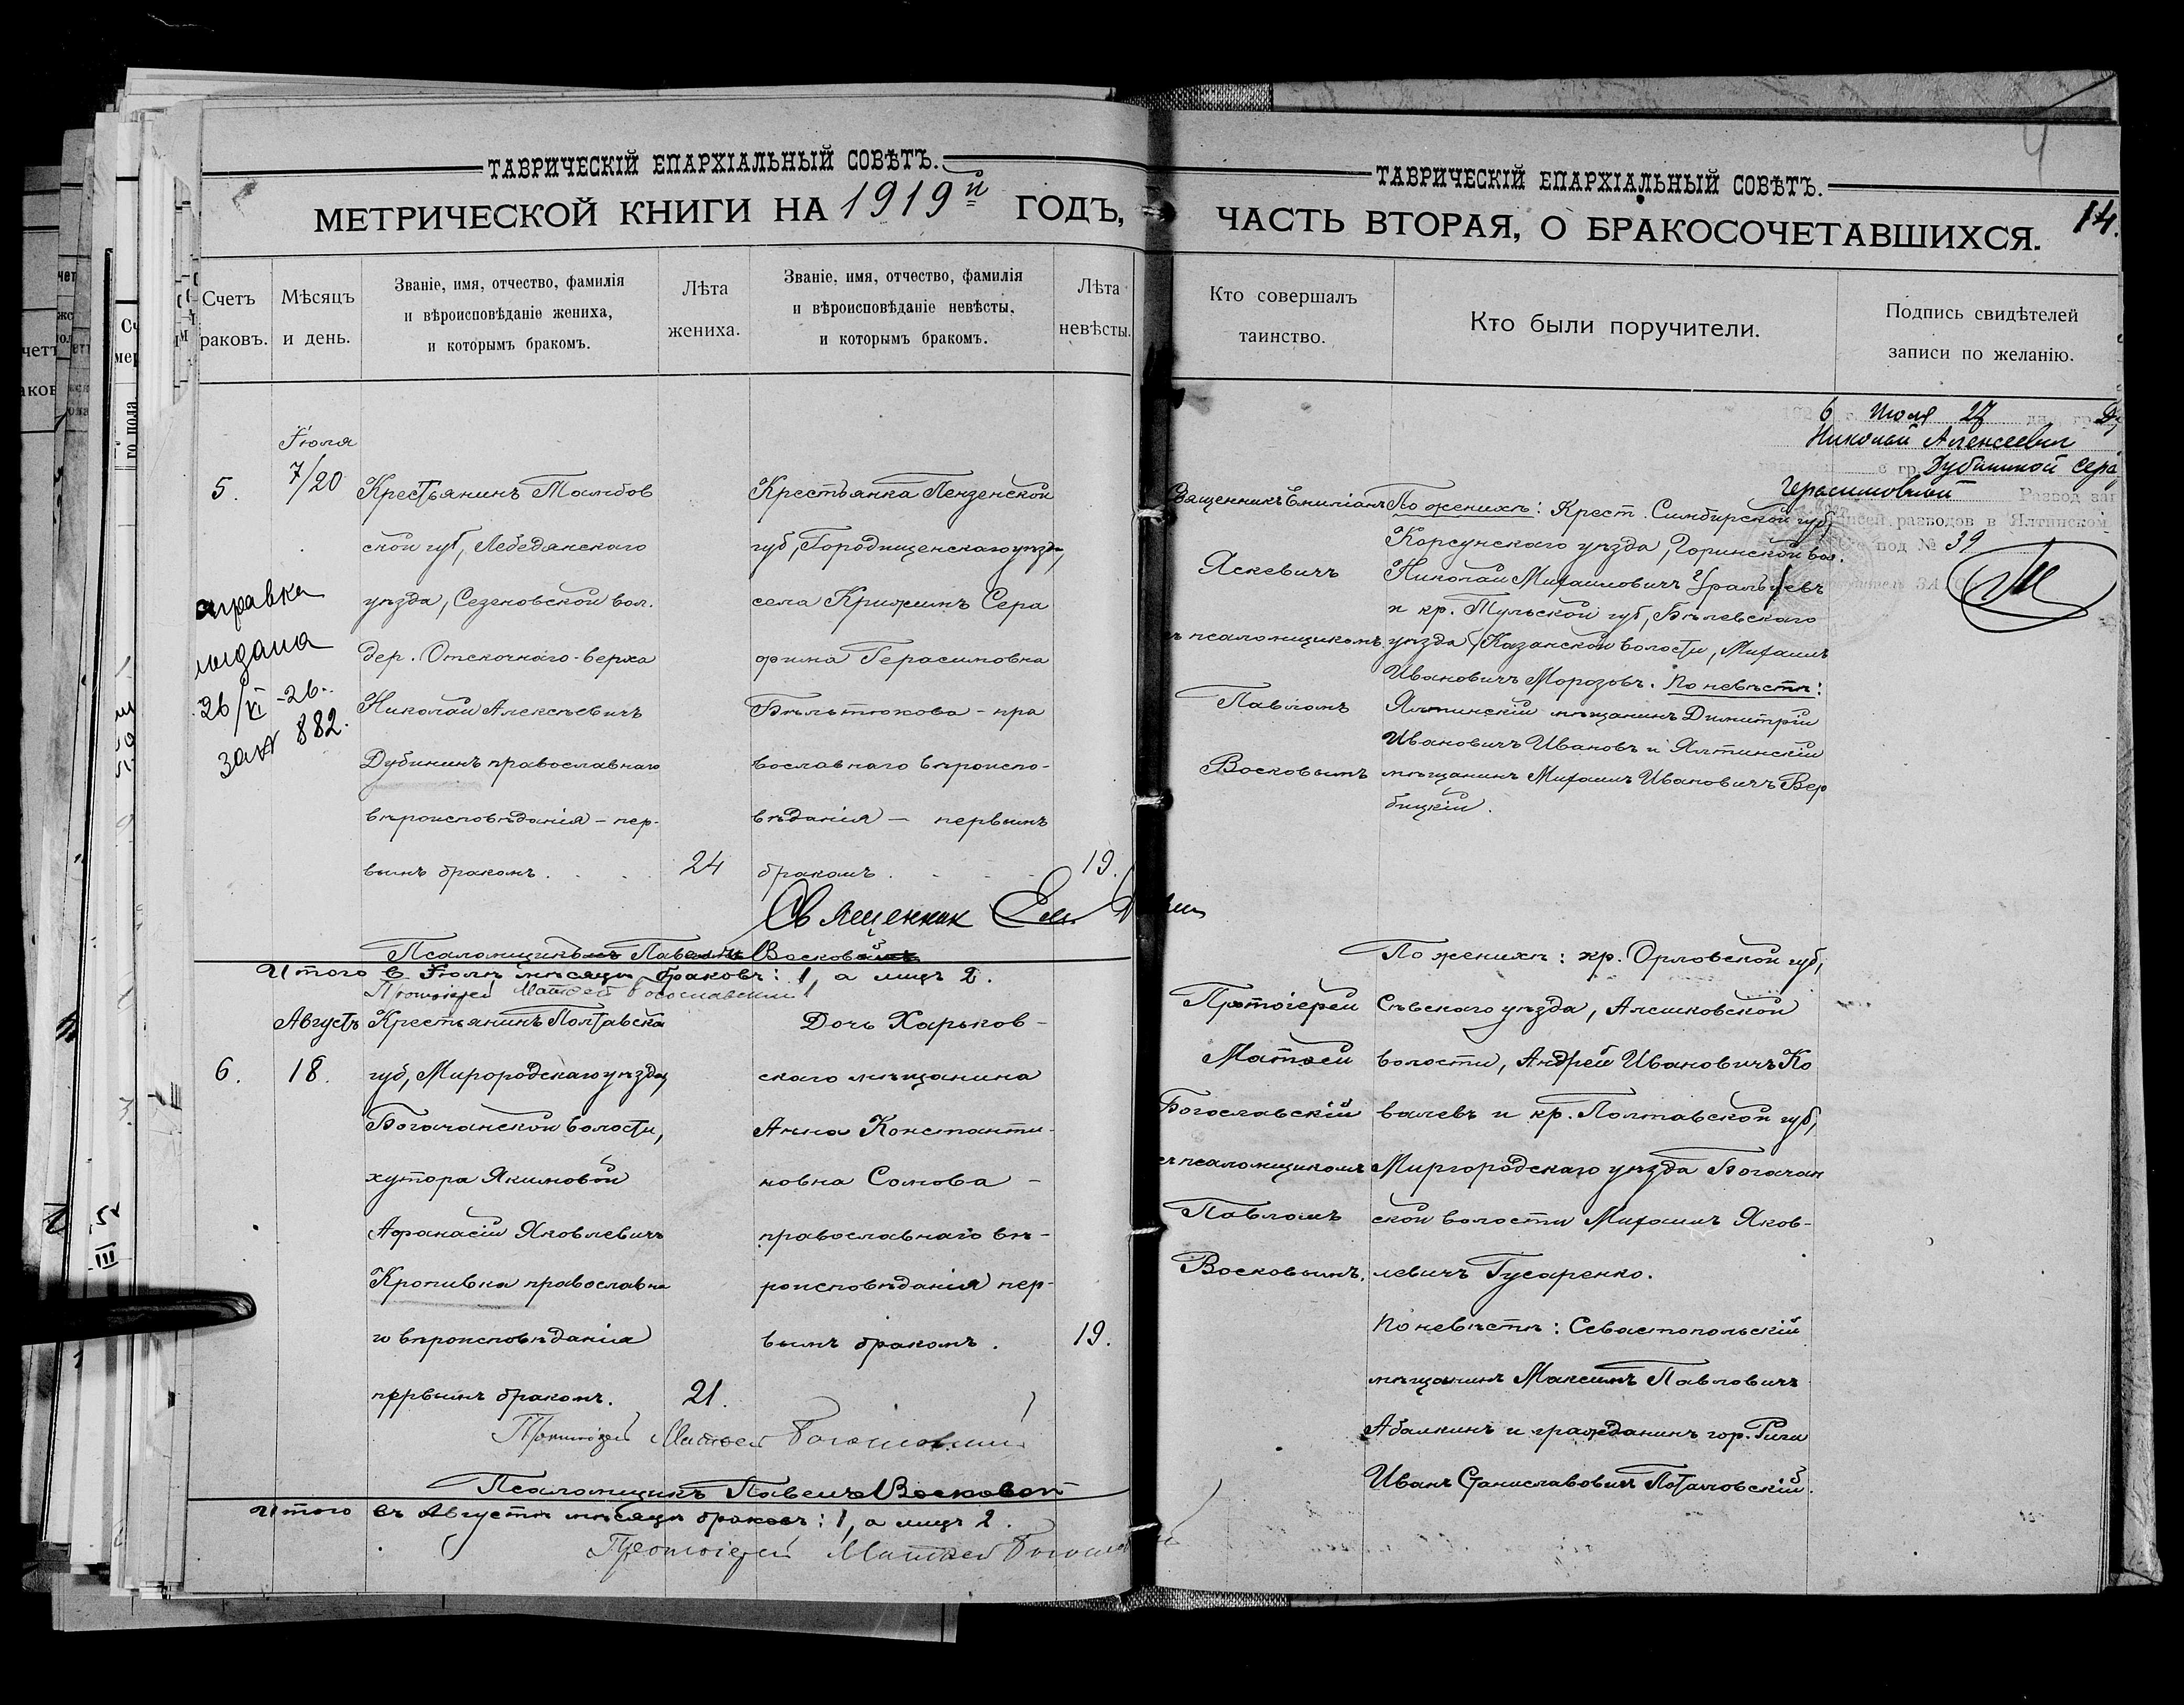 ТАВРИЧЕСКІЙ ЕПАРХІАЛЬНЫЙ СОВѢТЪ.
МЕТРИЧЕСКОЙ КНИГИ НА 1919й ГОДЪ,
Счетъ раковъ.
Мѣсяцъ и день.
Званіе, имя, отчество, фамилія
и вѣроисповѣданіе жениха,
и которымъ бракомъ.
Лѣта жениха.
Званіе, имя, отчество, фамилія
и вѣроисповѣданіе невѣсты,
и которымъ бракомъ.
Лѣта невѣсты.
5.
Іюля
7/20
Крестьянинъ Тамбов
ской губ, Лебедянскаго
уѣзда, Сезеновской вол.
дер. Отскочнаго-верха
Николай Алексѣевичъ
Дубининъ православнаго
вѣроисповѣданія – пер-
вымъ бракомъ.
24
Крестьянка Пензенской
губ, Городищенскаго уѣзда,
села Крижимъ Сера
фима Герасимовна
Бѣльтюкова – пра
вославнаго вѣроиспо-
вѣданія – первымъ
бракомъ.
19.
справка
выдана
26/VI-26.
за № 882.
Священник Ем.
Псаломщикъ Павелъ Восковой
Итого в Іюлѣ мѣсяцѣ браковъ: 1, а лицъ 2.
Протоіерей Матѳей Богославскій
6.
Августъ
18.
Крестьянинъ Полтавска
губ, Миргородскаго уѣзда,
Богачанской волости,
хутора Якимовой
Афанасій Яковлевичъ
Кропивка православна
го вѣроисповѣданія
первымъ бракомъ.
21.
Дочь Харьков-
скаго мѣщанина
Анна Константи-
новна Сомова –
православнаго вѣ-
роисповѣданія пер-
вымъ бракомъ.
19.
Протоіерей Матѳей Богославскій
Псаломщикъ Павелъ Восковой
Итого въ Августѣ мѣсяцѣ браковъ: 1, а лицъ 2.
Протоіерей Матѳей Богославскій
ТАВРИЧЕСКІЙ ЕПАРХІАЛЬНЫЙ СОВѢТЪ.
ЧАСТЬ ВТОРАЯ, О БРАКОСОЧЕТАВШИХСЯ.
14.
Кто совершалъ таинство.
Кто были поручители.
Подпись свидѣтелей
записи по желанію.
Священникъ Емиліанъ
Яскевичъ
съ псаломщикомъ
Павломъ
Восковымъ
По женихѣ: Крест. Симбирской губ,
Корсунскаго уѣзда, Горинской вол.
Николай Михаиловичъ
и кр. Тульской губ, Бѣлевскаго
уѣзда, Казанской волости, Михаилъ
Ивановичъ Морозовъ. По невѣстѣ:
Ялтинскій мѣщанинъ Димитрій
Ивановичъ Ивановъ и Ялтинскій
мѣщанинъ Михаилъ Ивановичъ Вер
бицкій.
6 г. Июля 27 дн
Николай Алексеевич
с гр Дубининой Сера
Герасимовной Развод зап
записей разводов в Ялтинском
под № 39
Протоіерей
Матѳей
Богославскій
съ псаломщикомъ
Павломъ
Восковымъ.
По женихѣ: кр. Орловской губ,
Сѣвскаго уѣзда, Алешковской
волости, Андрей Ивановичъ Ко
валевъ и кр. Полтавской губ,
Миргородскаго уѣзда Богачан
ской волости Михаилъ Яков-
левичъ Гусаренко.
По невѣстѣ: Севастопольскій
мѣщанинъ Максимъ Павловичъ
Абалкинъ и гражданинъ гор. Риги
Иванъ Станиславовичъ